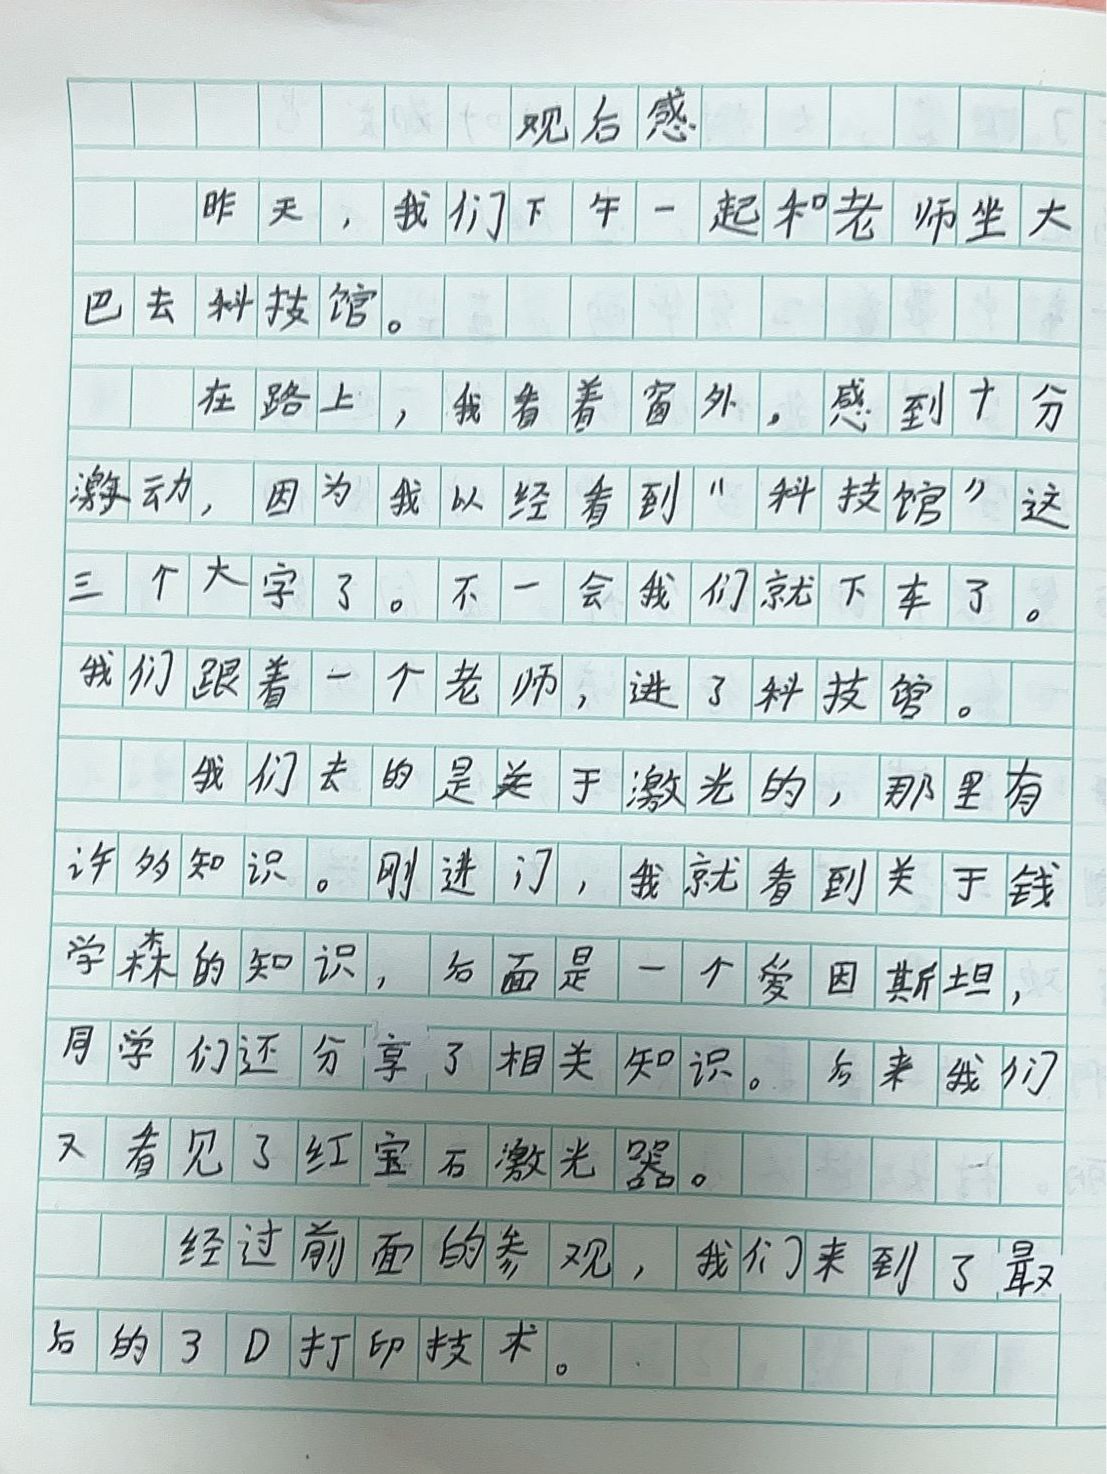 观后感
昨天，我们下午一起和老师坐大
巴去科技馆。
在路上，我看着窗外。感到十分
激动，因为我以经看到“科技馆”这
三个大字了。不一会我们就下车了。
我们跟着一个老师，进了科技馆。
我们去的是关于激光的，那里有
许多知识。刚进门，我就看到关于钱
学森的知识，后面是一个爱因斯坦，
同学们还分享了相关知识。后来我们
又看见了红宝石激光器。
经过前面的参观，我们来到了最
后的3D打印技术。